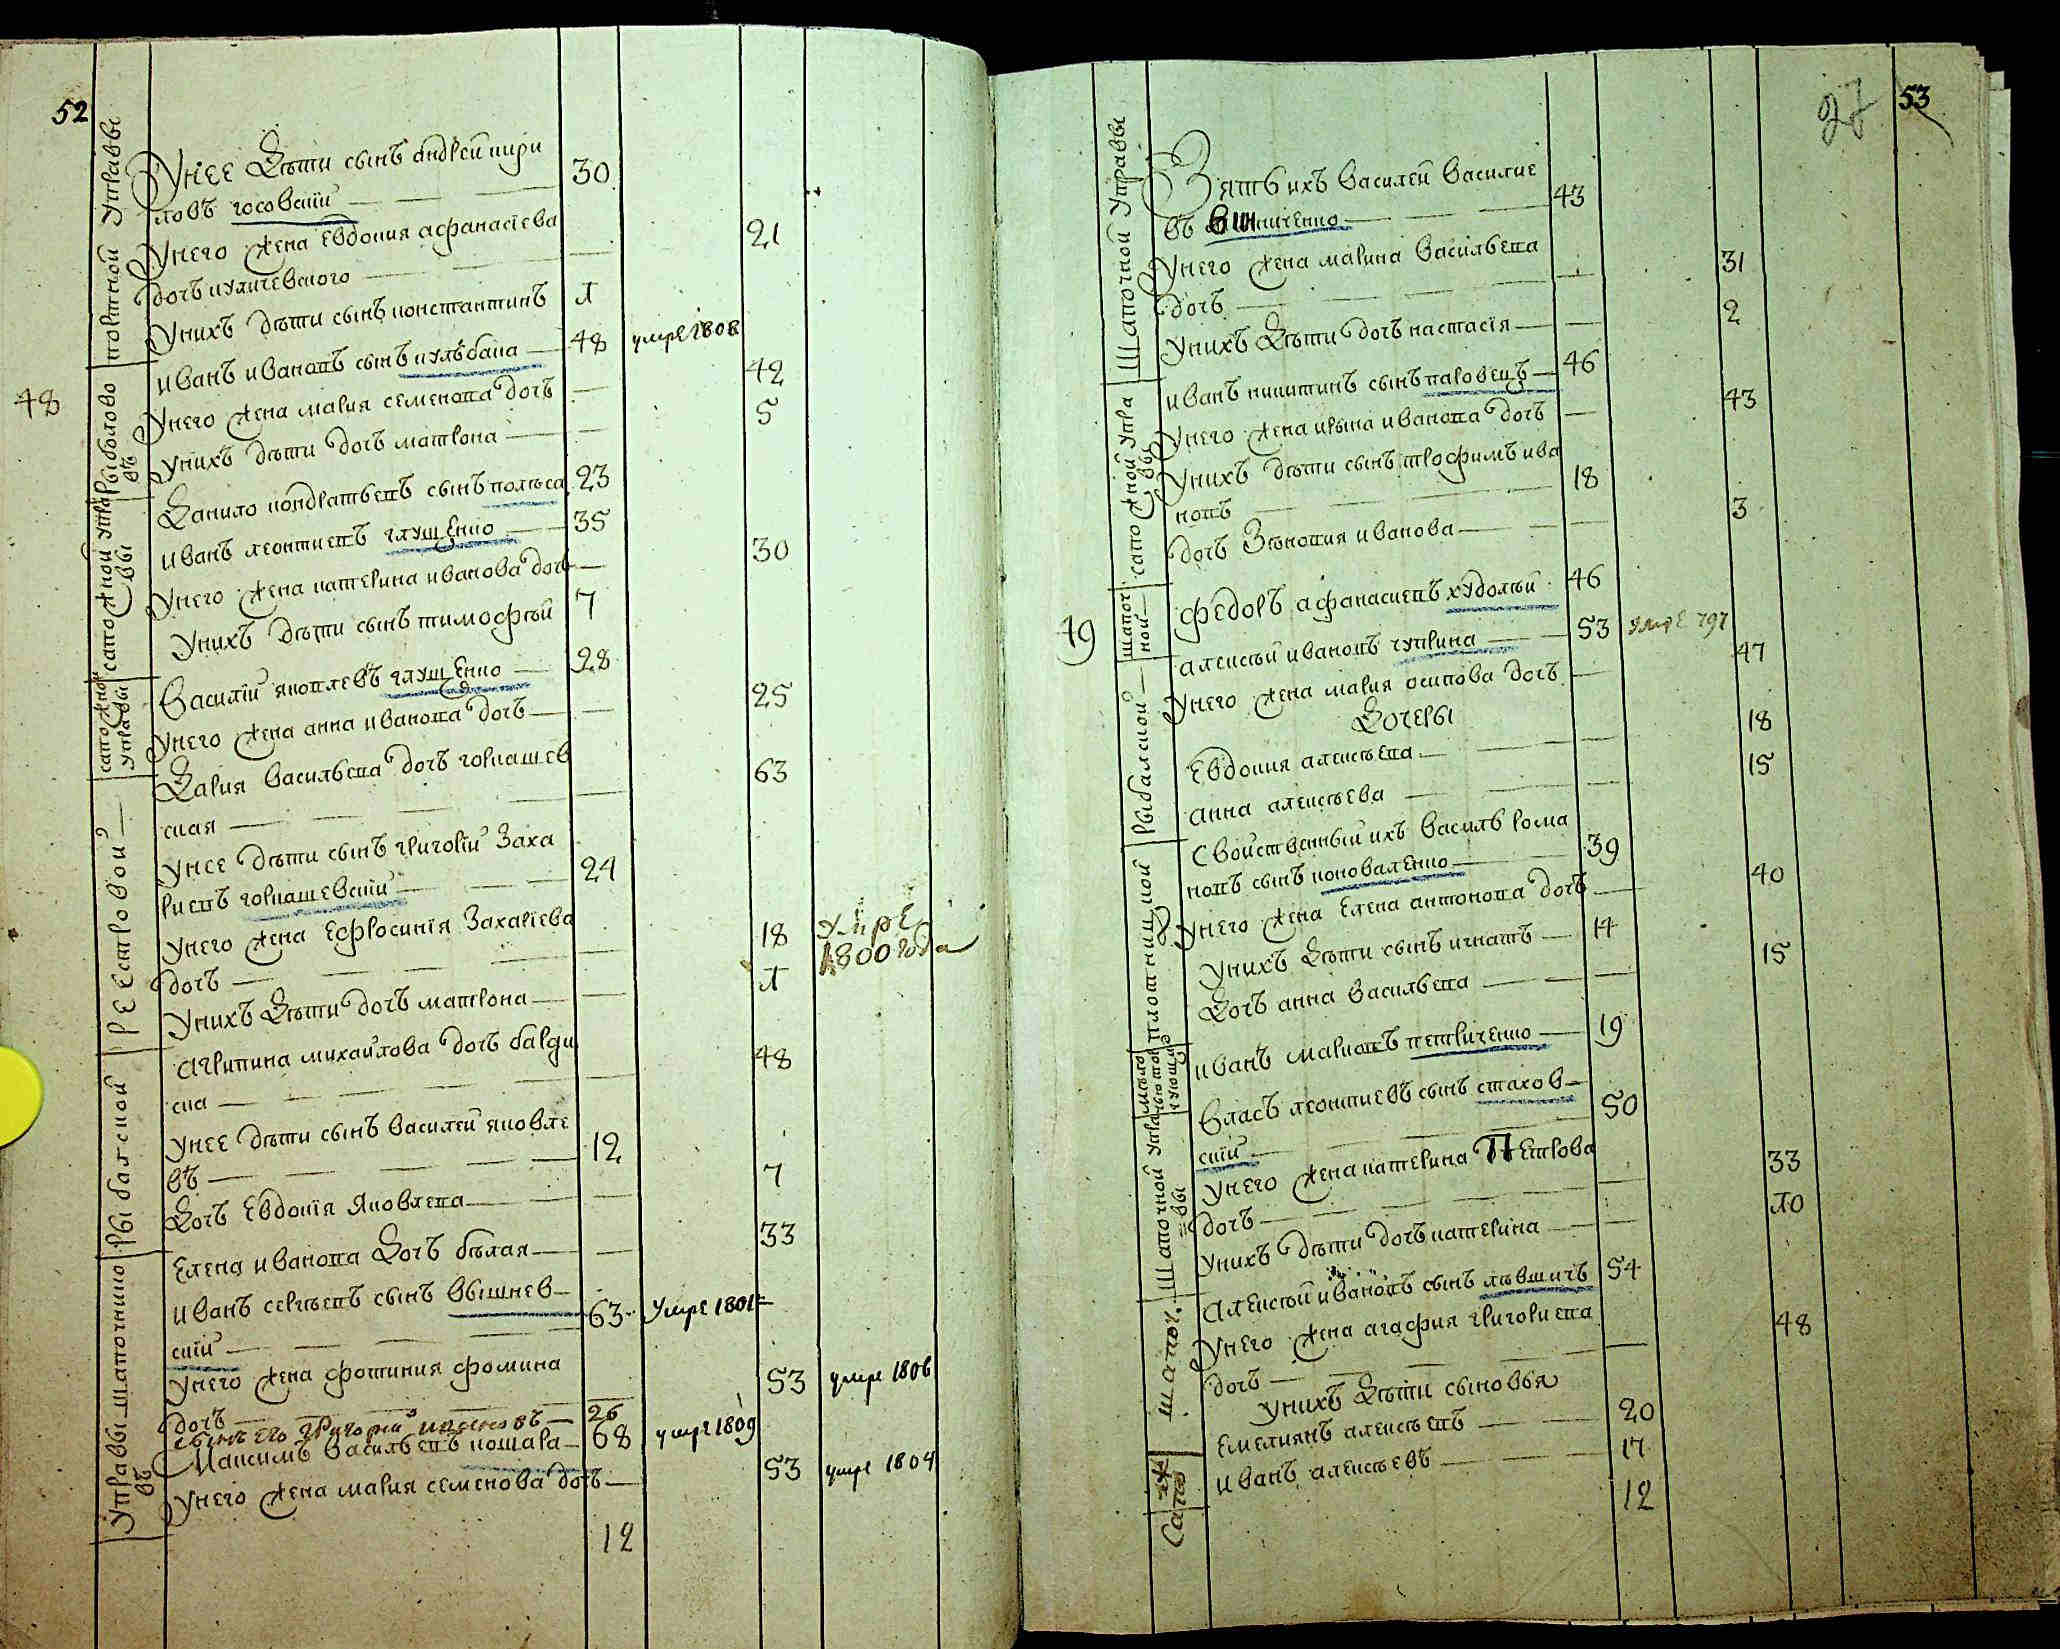 52
портной управы
Унее Дѣти сынъ андрей кири
ловъ косовскій
30
Унего жена Евдокия афанасіева
дочь куличевского
21
Унихъ дѣти сынъ константинъ
1
48
рыболово
въ
иванъ ивановъ сынъ кулѣбака
48
умре 1808
Унего жена мария семенова дочь
42
Унихъ дѣти дочь матрона
5
сапожной упра
вы
Данило кондратьевъ сынъ колѣса
23
иванъ леонтиевъ глущенко
35
Унего жена катерина иванова дочь
30
Унихъ дѣти сынъ тимофѣй
7
сапожной
управы
Василій яковлевъ глущенко
28
Унего жена анна иванова дочь
25
реестровой
Дария васильева дочь горкашев
ская
63
Унее дѣти сынъ григорій Заха
риевъ горкашевскій
24
Унего жена Ефросинія Захаріева
дочь
18
умре
1800 года
Унихъ Дѣти дочь матрона
1
рыбалской
агрипина михайлова дочь барди
ска
48
Унее дѣти сынъ василей яковле
въ
12
Дочь Евдокія Яковлева
7
Елена иванова Дочь бѣлая
33
Управы шапочнико
въ
иванъ сергѣевъ сынъ вышнев
скій
63
умре 1801
Унего жена фотиния фомина
дочь
53
умре 1806
сынъ его григорий ивановъ
26
Максимъ васильевъ кошара
68
умре 1809
Унего жена мария семенова дочь
53
умре 1804
12
27
53
Шапочной Управы
Зять ихъ василей василие
въ винниченко
43
Унего жена марина васильева
дочь
31
Унихъ Дѣти дочь настасія
2
сапожной упра
вы
иванъ никитинъ сынъ паровецъ
46
Унего жена ирина иванова дочь
43
Унихъ дѣти сынъ трофимъ ива
новъ
18
дочь Зѣновия иванова
3
49
шапоч
ной
федоръ афанасиевъ худолѣй
46
рыбалской
алексѣй ивановъ чуприна
53
умре 797
Унего жена мария осипова дочь
47
Дочеры
Евдокия алексѣева
18
анна алексѣева
15
плотницкой
Свойственный ихъ василь рома
новъ сынъ коноваленко
39
Унего жена Елена антонова дочь
40
Унихъ Дѣти сынъ игнатъ
14
Дочь анна васильева
15
иванъ марковъ петриченко
19
Шапочной упра
вы
власъ леонтиевъ сынъ стахов
скій
50
Унего жена катерина Петрова
дочь
33
Унихъ дѣти дочь катерина
10
шапоч.
алексѣй ивановъ сынъ лѣвшичъ
54
Унего жена агафия григориева
дочь
48
Унихъ Дѣти сыновья
Емелиянъ алексѣевъ
20
Сапож
иванъ алексѣевъ
17
12